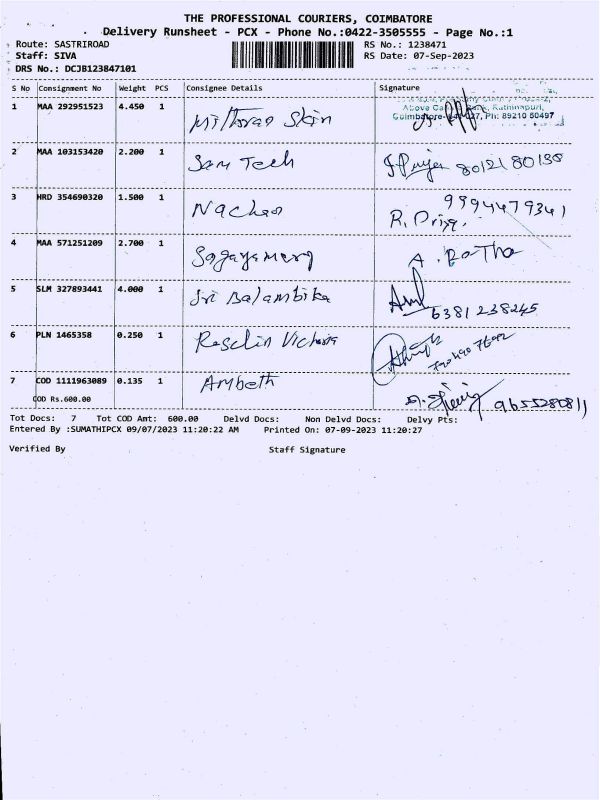 THE PROFESSIONAL COURIERS, COIMBATORE
Delivery Runsheet - PCX - Phone No.:0422-3505555 - Page No.:1
Route: SASTRIROAD RS No.: 1238471
Staff: SIVA RS Date: 07-Sep-2023
DRS No.: DCJB123847101
S No Consignment No Weight PCS Consignee Details Signature
1 MAA 292951523 4.450 1 Skin
Coimbatore- Ph: 89210 60497
2 MAA 103153420 2.200 1 Sam Tech 80121 80138
3 HRD 354690320 1.500 1 Nachao 9994479341
R. Priya.
4 MAA 571251209 2.700 1 Sagayamery A. Radha
5 SLM 327893441 4.000 1 Sri Balambika
6381 238245
6 PLN 1465358 0.250 1 Roselin Victoria
7 COD 1111963089 0.135 1 Ambeth
COD Rs.600.00 9655280811
Tot Docs: 7 Tot COD Amt: 600.00 Delvd Docs: Non Delvd Docs: Delvy Pts:
Entered By :SUMATHIPCX 09/07/2023 11:20:22 AM Printed On: 07-09-2023 11:20:27
Verified By Staff Signature